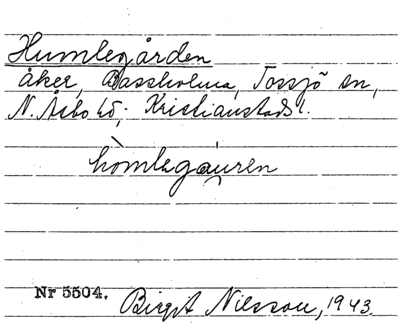 Humlegården
åker, Bassholma, Tossjö sn,
N. Åsbo hd; Kristianstads l.
hòmlegau̯ren
Nr 5504. Birgit Nilsson, 1943.